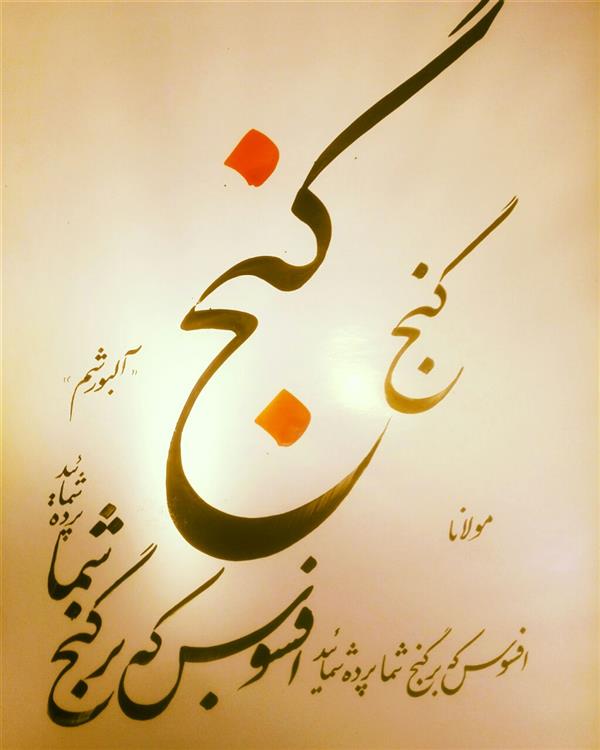 گنج
گنج
«آلبورشم»
مولانا
افسوس که بر گنج شما پرده شمائید
افسوس که بر گنج شما پرده شمائید